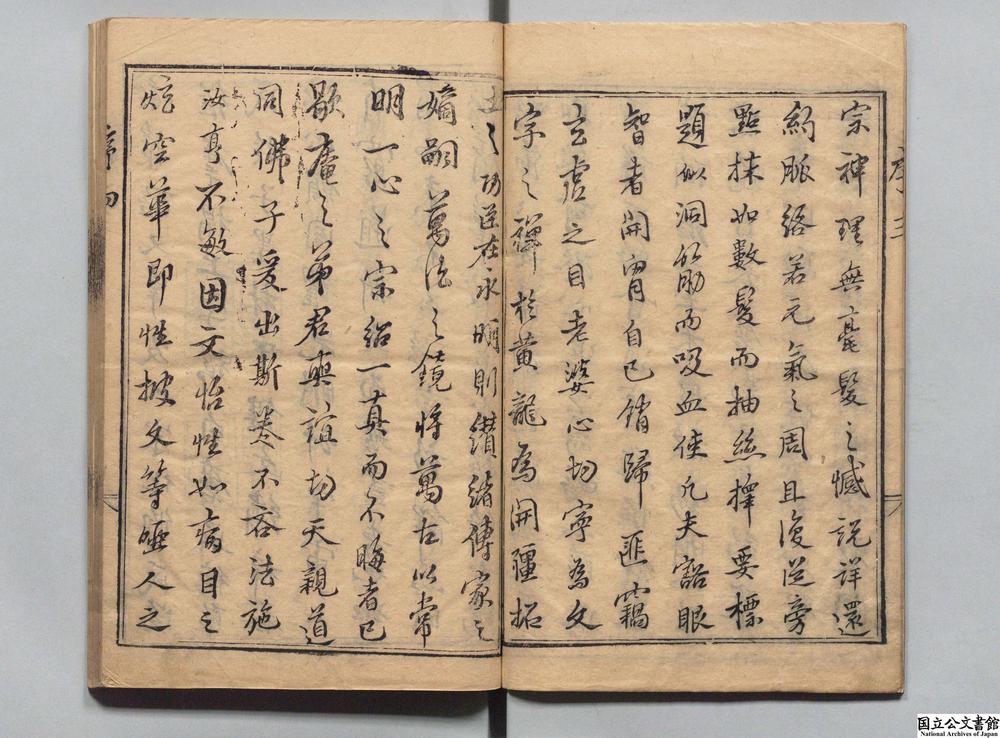 序三
宗神理無毫髮之憾說詳還
約脈絡若元氣之周且復從旁
點抹如數髮而抽絲擇要標
題似洞筋而吸血使凡夫豁眼
智者開胷自已銷歸匪竊
玄虛之目老婆心切寧為文
字之禪於黃龍為開疆拓
土之功逆在永明則纘緒傳家之
嫡嗣萬法之鏡將萬古以常
明一心之宗紹一真而不晦者已
歇菴之弟君奭誼切天親道
同佛子爰出斯卷不吝法施
汝亨不敏因文怡性如病目之
炫空華即性披文等啞人之
序四
国立公文書館
National Archives of Japan